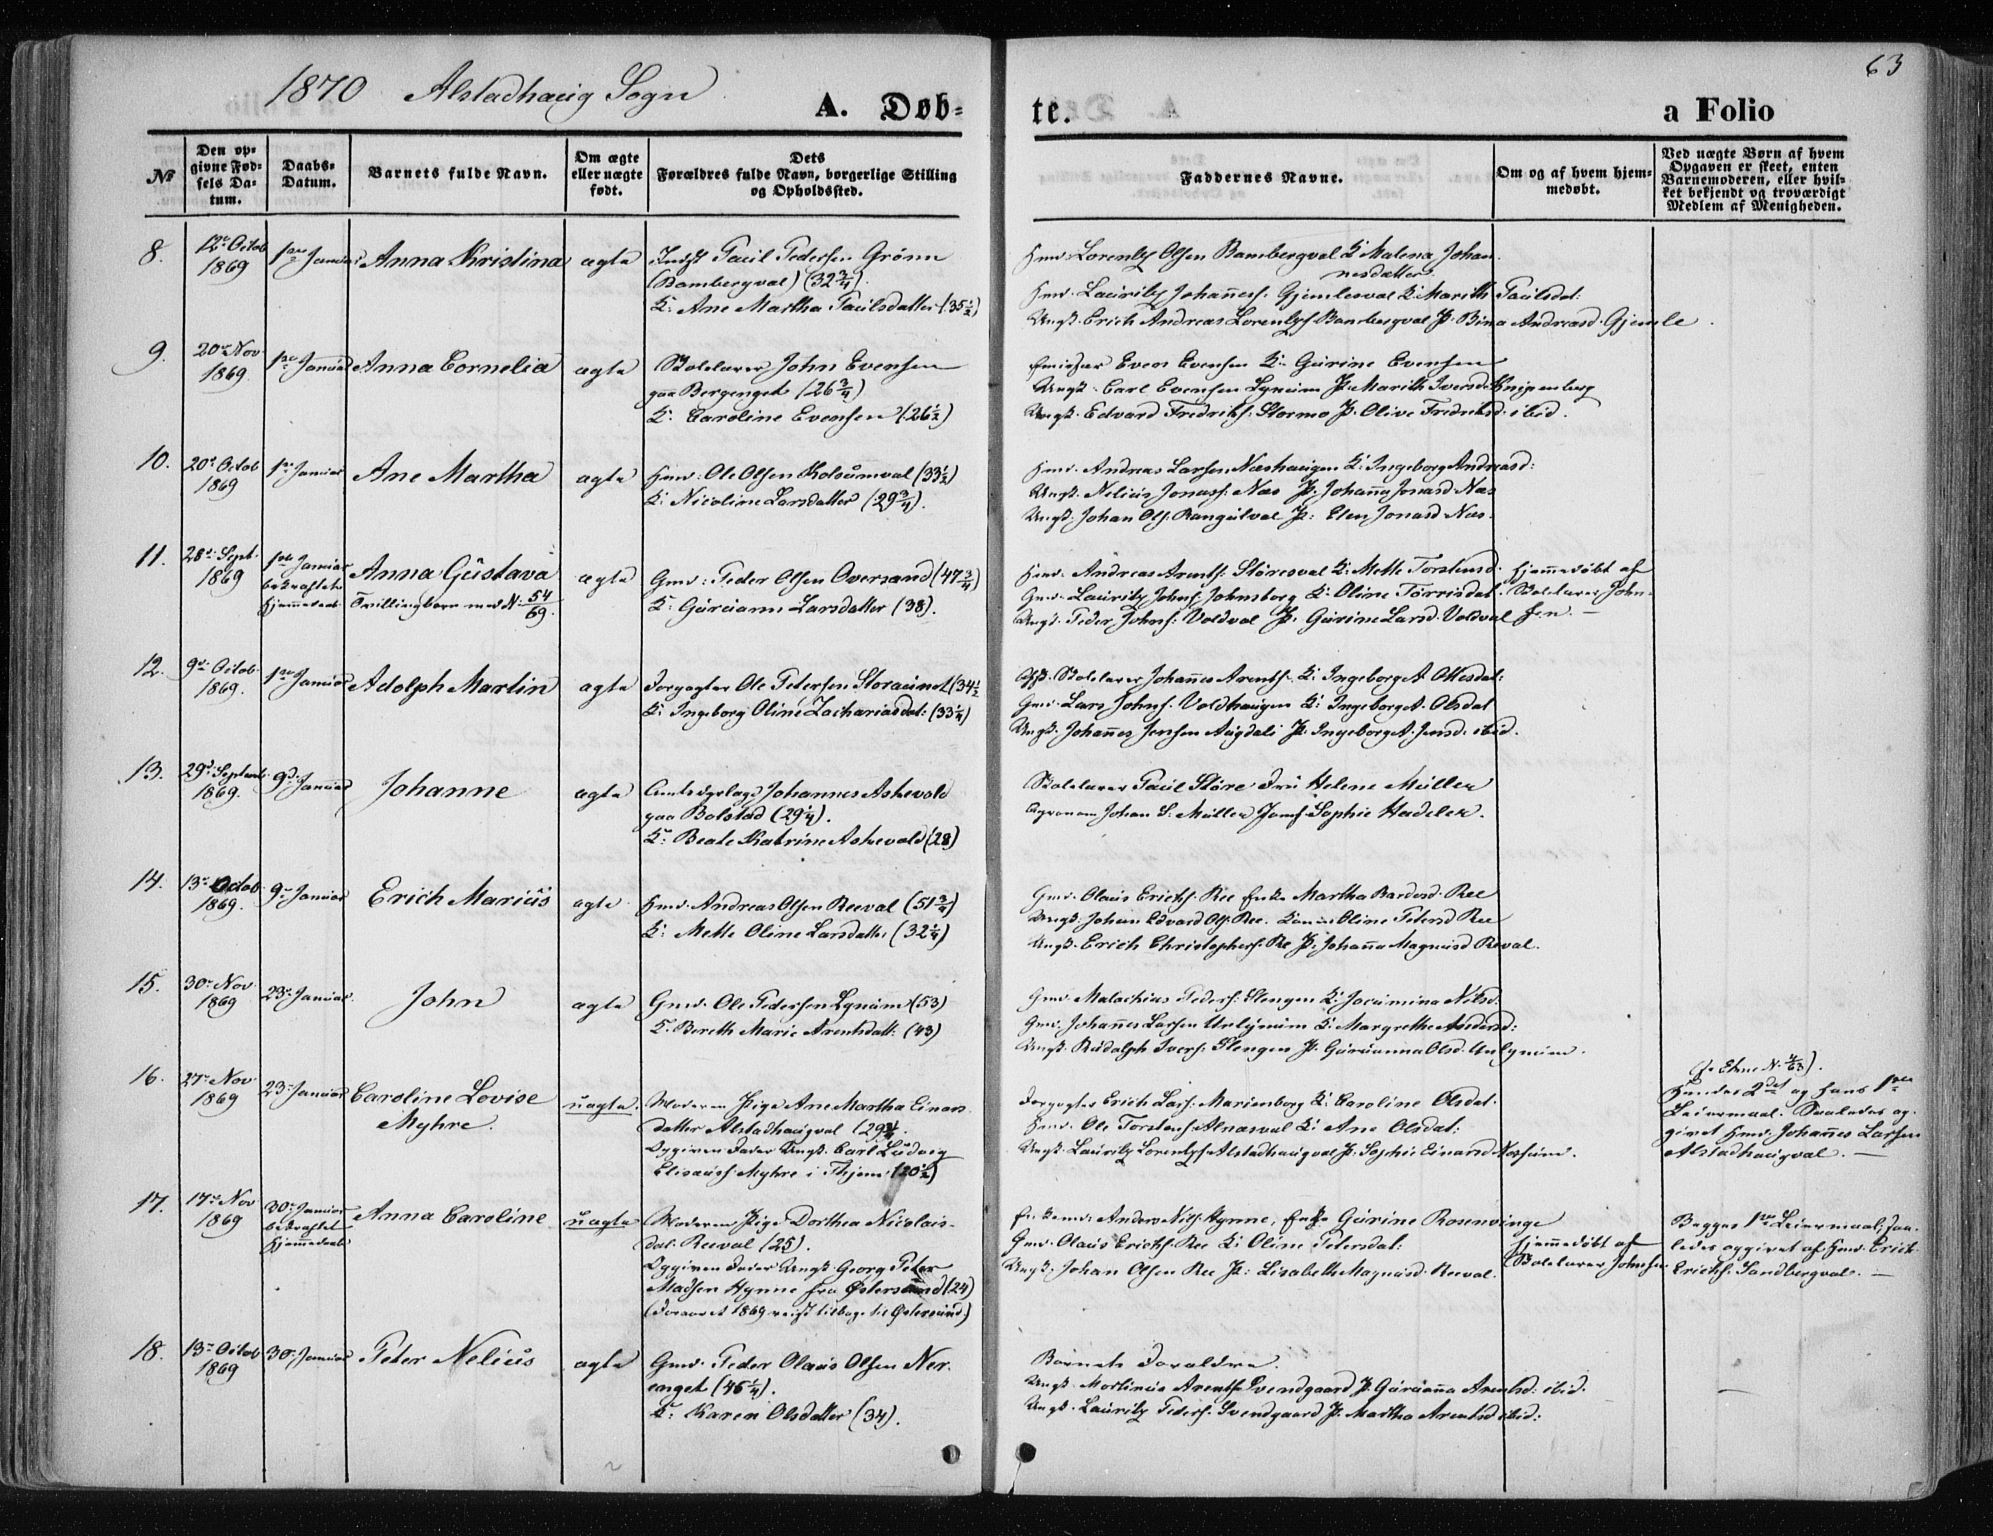 1870 Alstadhaug Sogn
A. Døb-
te.
a Folio
63
№
Den op-
givne Fød-
sels Da-
tum.
Daabs-
Datum.
Barnets fulde Navn.
Om ægte
eller uægte
født.
Dets
Forældres fulde Navn, borgerlige Stilling
og Opholdssted.
Faddernes Navne.
Om og af hvem hjem-
medøbt.
Ved uægte Børn af hvem
Opgaven er skeet, enten
Barnemoderen, eller hvil-
ket bekjendt og troværdigt
Medlem af Menigheden.
8.
12te Octob
1869
1ste Januar
Anna Kristina
ægte
Indst Paul Pedersen Grønn
(Bambergval) (32 3/4).
K: Ane Martha Paulsdatter (35 1/2)
Hmd. Lorents Olsen Bambergval K: Malena Johan
nesdatter
Hmd. Laurits Johannesf. Gjemlesval K: Marith Paulsdat:
Ungk. Erich Andreas Lorentsf Bambergval P: Bina Andreasd. Gjemle.
9.
20de Nov.
1869.
1ste Januar
Anna Cornelia
ægte
Skolelærer John Evensen
paa Bergenget (26 3/4)
K: Caroline Evensen (26 1/2)
Even Evensen K: Gurine Evensen
Ungk. Carl Evensen Lyneim P: Marith Iversd. Knipenberg
Ungk. Edvard Fredriksf: Stormo P. Olive Fredriksd. ibid.
10.
20de Octob
1869
1ste Januar
Ane Martha
ægte
Hmd. Ole Olsen Kolsumval (33 1/2)
K: Nicoline Larsdatter (29 3/4).
Hmd. Andreas Larsen Næshaugen K: Ingeborg Andreasd:
Ungk. Nelius Jonasf: Næs P: Johanna Jonasd. Næs
Ungk. Johan Olf. Rangulval P: Elen Jonasd Næs.
11.
28de Sept.
1869
1ste Januar
bekræftet
hjemmedaab
Anna Gustava
Tvillingbarn med N. 54/69.
ægte
Gmd: Peder Olsen Oversand (47 3/4)
K: Guruanna Larsdatter (38).
Hmd. Andreas Arentf: Støresval K: Mette Torstensd.
Gmd. Laurits Johnsf: Johnsborg K: Oline Torrisdat.
Ungk. Peder Johnsf: Voldval P: Gurine Larsd. Voldval
Hjemmedøbt af
Skolelærer John-
sen. —
12.
9de Octob.
1869.
1ste Januar
Adolph Martin
ægte
Forpagter Ole Petersen Storaunet (34 1/2
K: Ingeborg Oline Zachariasdat: (33 1/4)
Skolelærer Johannes Arentsf. K: Ingeborg A. Ottesdat:
Gmd. Lars Johnsf. Voldhaugen K: Ingeborg A. Olsdat
Ungk. Johannes Jensen Augdali P. Ingeborg A. Jensd. ibid.
13.
29de Septemb.
1869.
9de Januar
Johanne
ægte
Johannes Askevold
paa Bolstad (29 1/4).
K: Beate Katrine Askevold (28)
Skolelærer Paul Støre Fru Helene Müller
Agronom Johan L. Müller Jomf Sophie Hadeler.
14.
13de Octob.
1869.
9de Januar
Erich Marius
ægte
Hmd. Andreas Olsen Reeval (51 3/4)
K: Mette Oline Larsdatter (32 1/4)
Gmd. Olaus Erichf. Ree Enke Martha Bardosd. Ree
Ungk. Johan Edvard Olf. Ree. Oline Petersd Ree
Ungk. Erich Christophersf. Re P: Johanna Magnusd Reeval.
15.
30te Nov.
1869
23de Januar.
John
ægte
Gmd. Ole Pedersen Lynum (53)
K: Bereth Marie Arentsdatt: (43)
Gmd. Malachias Pedersf: Stengen K: Jocumina Nilsd.
Gmd. Johannes Larsen Utlynum K: Margrethe Andersd:
Ungk. Rudolph Iversf. Stengen P: Guruanna Olsd. Utlynum.
16.
27de Nov.
1869
23de Januar
Caroline Lovise
Myhre.
uægte.
Moderen Pige Ane Martha Einars
datter Alstadhaugval (29 3/4).
Opgiven Fader Ungk. Carl Ludvig
Elisæusf Myhre i Thjem (20 1/2)
Forpagter Erich Larsf. Marienborg K: Caroline Olsdat.
Hmd. Ole Torstensf. Alnæsval K: Ane Olsdat:
Ungk. Laurits Lorentsf Alstadhaugval P. Sophie Einarsd Mossum.
Hendes 2det og hans 1ste
Leiermaal. Saaledes op-
givet Hmd. Johannes Larsen
Alstadhaugval. —
17.
17de Nov
1869
30te Januar
bekræftet
hjemmedaab
Anna Caroline
uægte
Moderen Pige Dorthea Nicolais-
dat. Reeval (25).
Opgiven Fader Ungk. Georg Peter
Madsen Hynne fra Østersund (24)
(Foraaret 1869 reist tilbage til Østersund.)
Anders Nilsf. Hynne, Enke Gurine Rosenvinge
Gmd. Olaus Erichsf. Ree K: Oline Petersdat:
Ungk. Johan Olsen Ree P: Lisabeth Magnusd. Reeval.
Hjemmedøbt af
Skolelærer Johnsen
Begges 1ste Leiermaal; saa-
ledes opgivet af Hmd. Erich
Erichsf. Sandbergval. —
18.
13de Octob
1869
30te Januar
Peter Nelius
ægte
Gmd. Peder Olaus Olsen Ner-
enget (46 1/4).
K: Karen Olsdatter (34).
Barnets Forældre.
Ungk. Martinus Arentsf. Svendgaard P. Guruanna Arentsd: ibid.
Ungk. Laurits Pedersf. Svendgaard P. Martha Arentsd ibid: